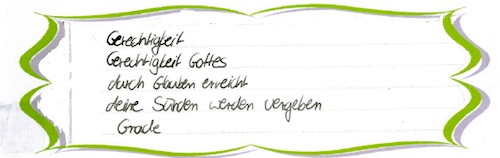 Gerechtigkeit
Gerechtigkeit Gottes
durch Glauben erreicht
deine Sünden werden vergeben
Grade